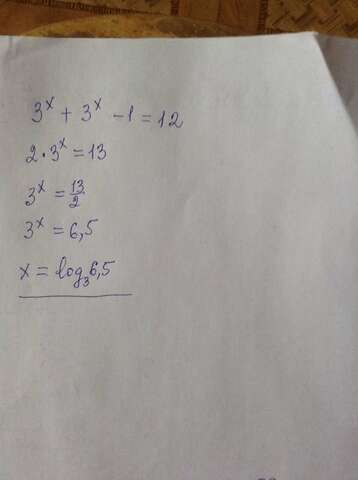 3ˣ + 3ˣ - 1 = 12
2 · 3ˣ = 13
3ˣ = 13/2
3ˣ = 6,5
x = log₃6,5